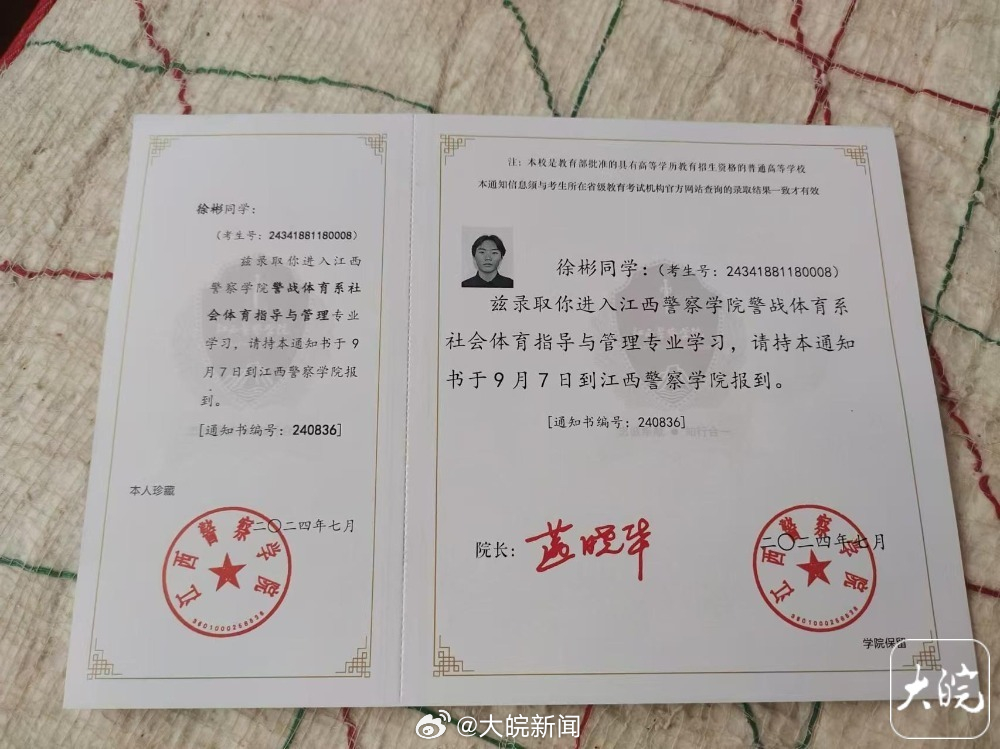 徐彬同学:
(考生号: 24341881180008)
兹录取你进入江西
警察学院警战体育系社
会体育指导与管理专业
学习, 请持本通知书于9
月7日到江西警察学院报
到。
[通知书编号: 240836]
本人珍藏
二〇二四年七月
江西警察学院
3601000268838
注: 本校是教育部批准的具有高等学历教育招生资格的普通高等学校
本通知信息须与考生所在省级教育考试机构官方网站查询的录取结果一致才有效
徐彬同学: (考生号: 24341881180008)
兹录取你进入江西警察学院警战体育系
社会体育指导与管理专业学习, 请持本通知
书于9月7日到江西警察学院报到。
[通知书编号: 240836]
知行合一
院长:
二〇二四年七月
江西警察学院
3601000268838
学院保留
大皖
@大皖新闻